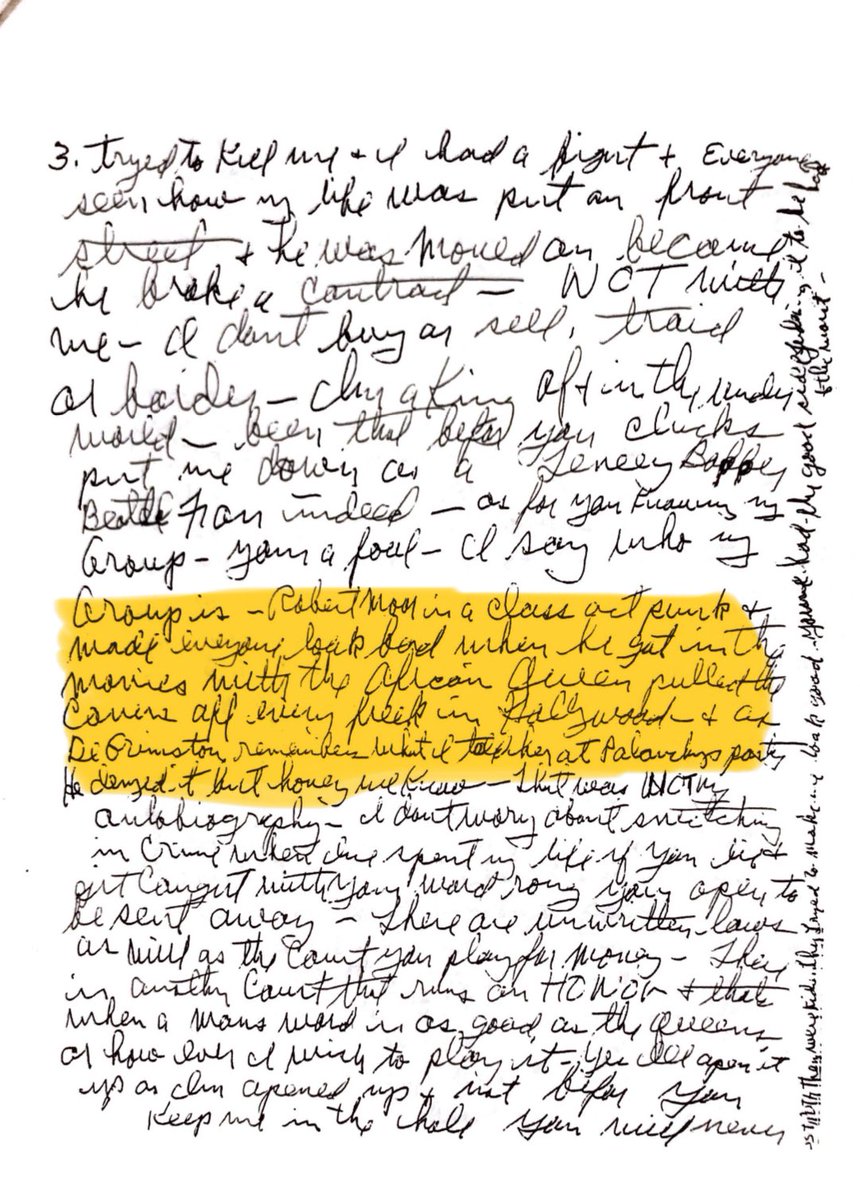 3. tryed to Kill me + I had a fight + Everyone
seen how my life was put on front
street + he was moved on because
he broke a contract — NOT with
me — I dont buy or sell, traid
or barder — Im a King of + in the under
world — been that befor you chicks
put me down as a
Beatle Fran indeed — as for you Knowing my
Group — your a fool — I say who my
Group is — Robert Moor is a class act punk +
made everyone look bad when he got in the
movies with the African Queen pulled the
Covers off every freek in Hollywood — + as
DeGrimston remembers what I told her at Polanskys party
He denyed it but honey we know — that was NOT my
autobiography — I dont worry about snitching
in crime when Ive spent my life if you lie +
get caught with your word rong your open to
be sent away — there are unwritten laws
as well as the Court you play for money — They
in another Court that runs on HONOR + that
when a mans word is as good as the Queens
or how ever I wish to play it — yes Ill open it
up as Im opened up + not befor you
Keep me in the hole you will never
they tryed to make me look good